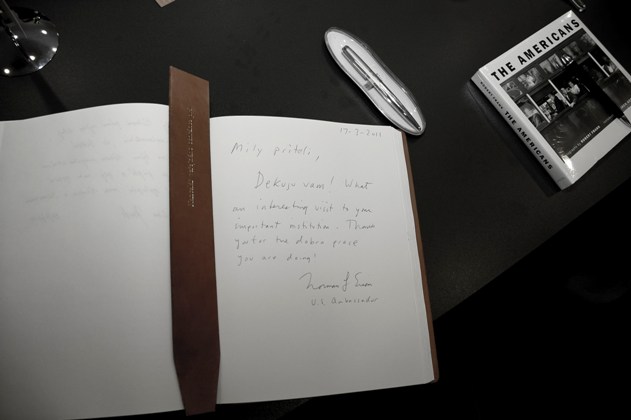 17-3-2011
Mily příteli,
Dekuju vam! What
an interesting visit to your
important institution. Thank
you for the dobra prace
you are doing!
U.S. Ambassador
THE AMERICANS
ROBERT FRANK
THE AMERICANS